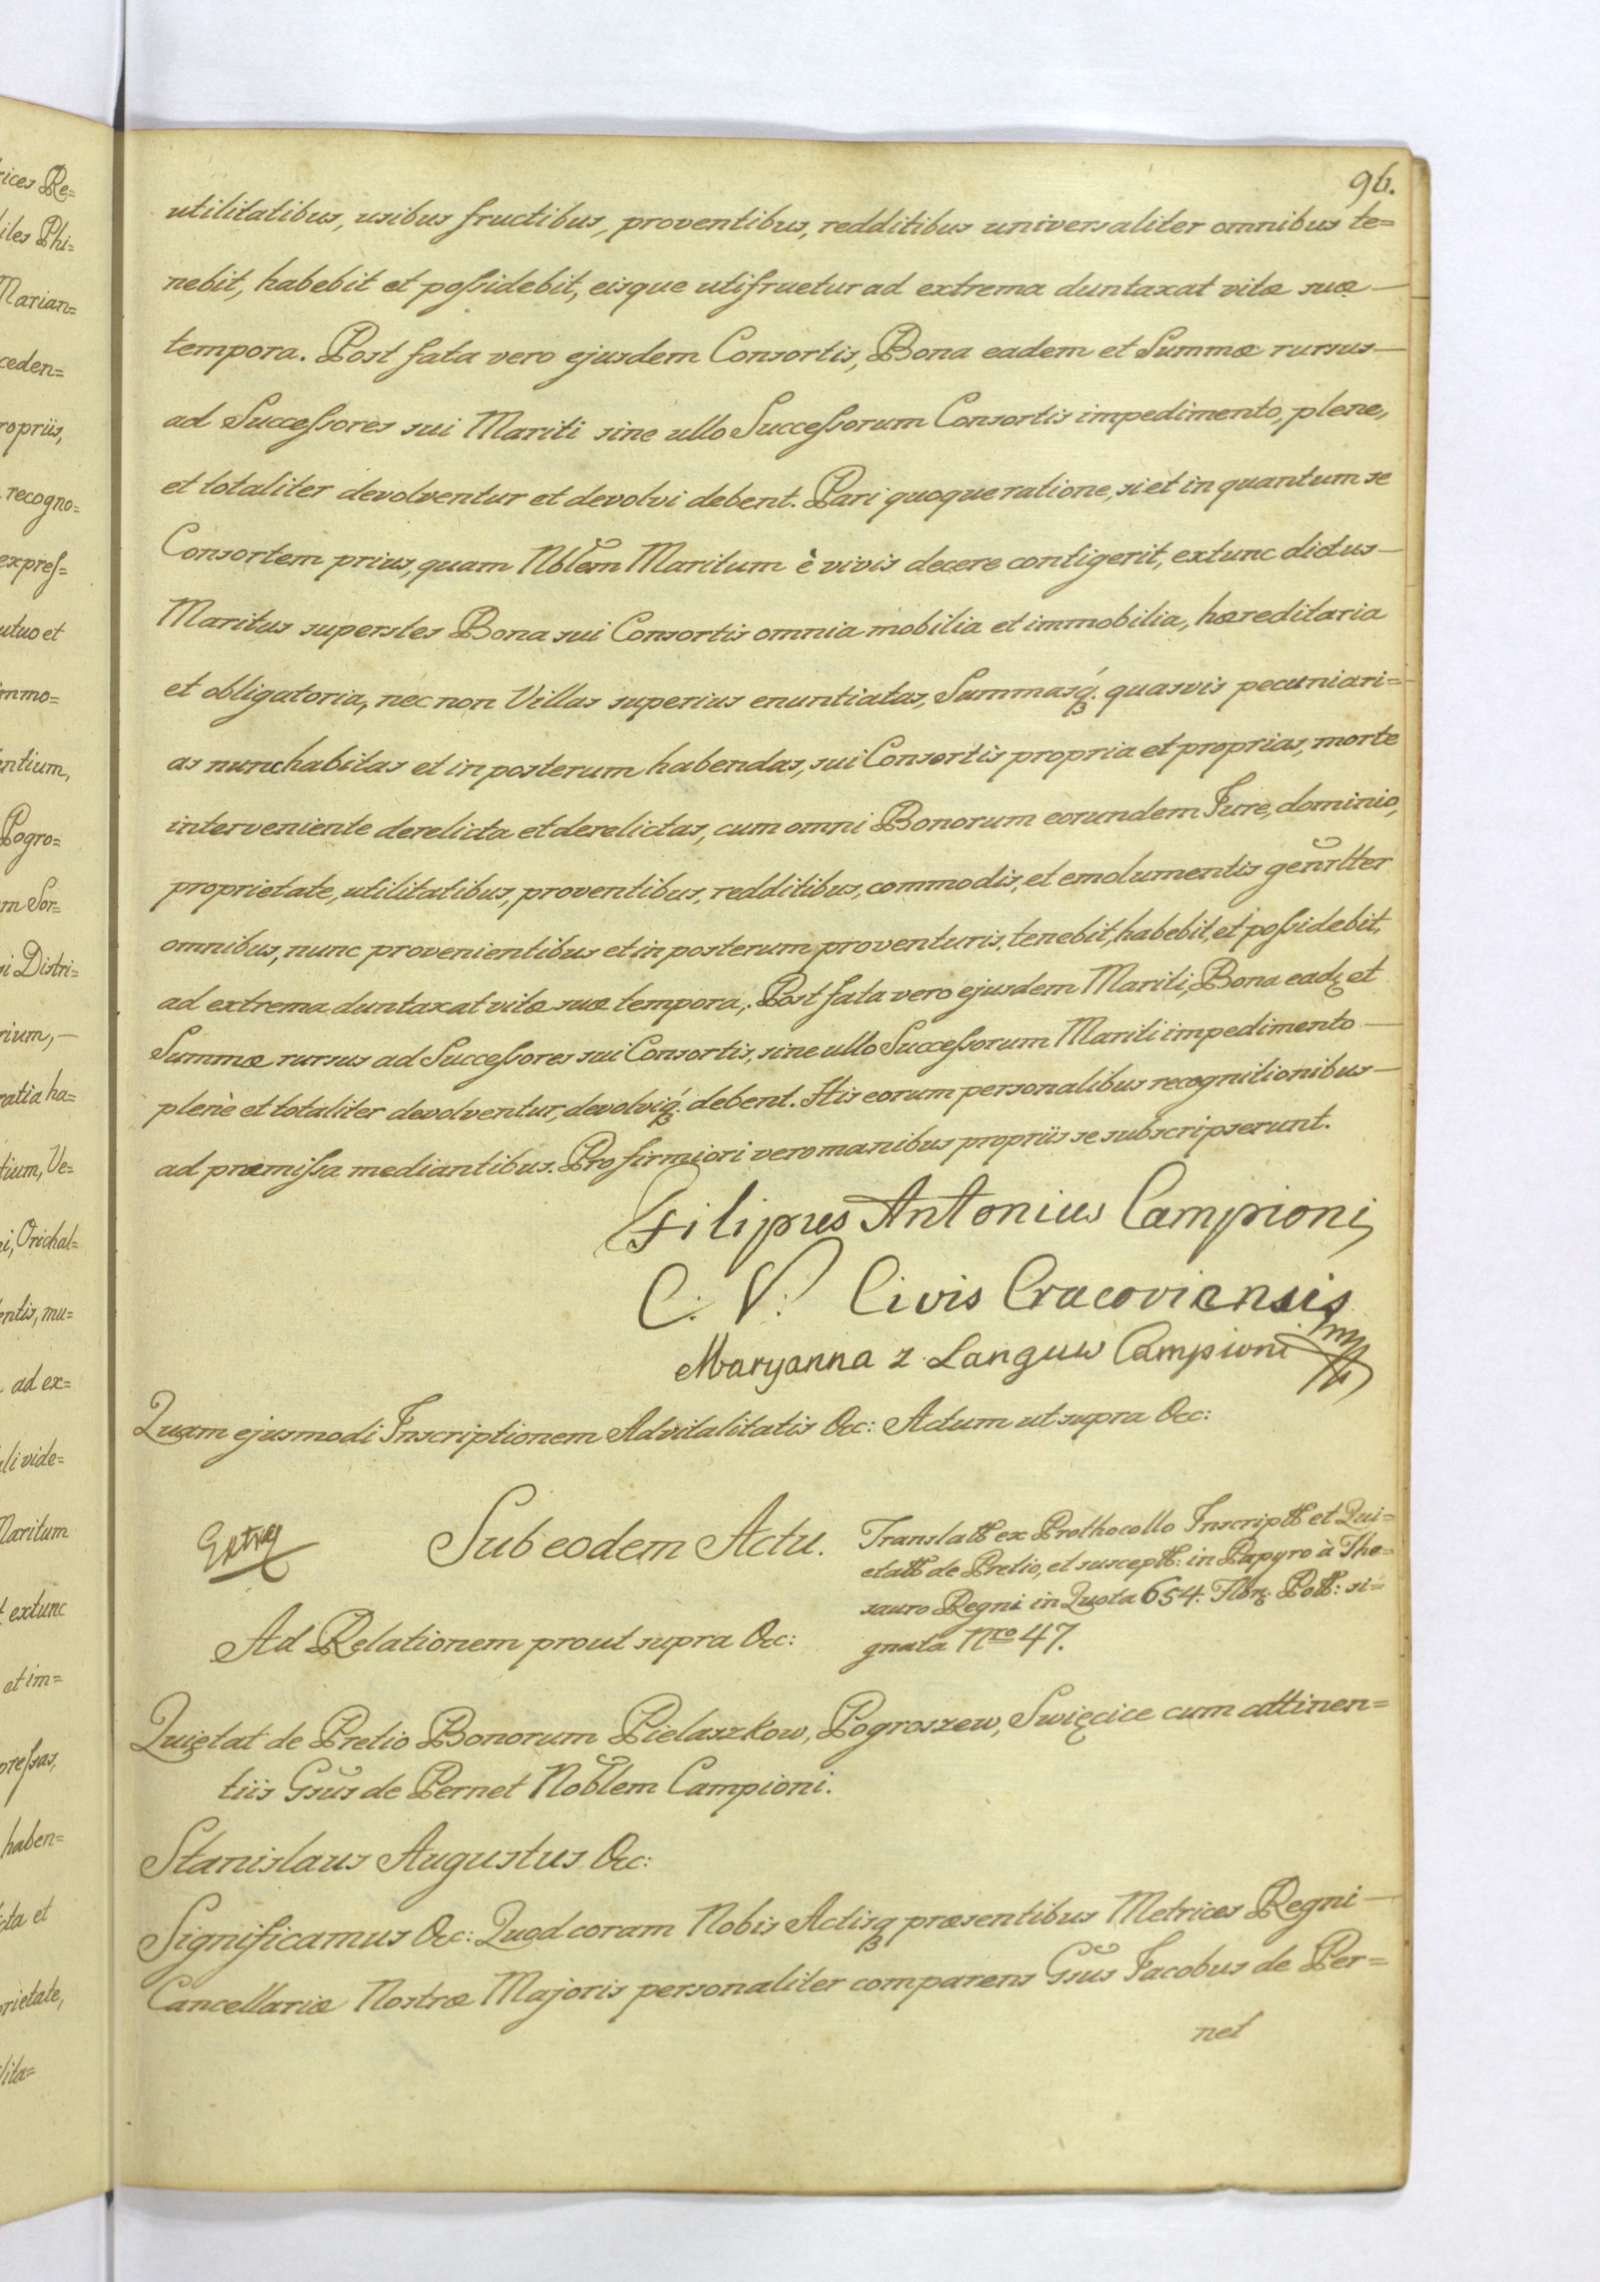 96.
utilitatibus, usibus fructibus, proventibus, redditibus universaliter omnibus te=
nebit, habebit et possidebit, eisque utifruetur ad extrema duntaxat vitæ suæ —
tempora. Post fata vero ejusdem Consortis, Bona eadem et Summæ rursus —
ad Successores sui Mariti sine ullo Successorum Consortis impedimento, plene,
et totaliter devolventur et devolvi debent. Pari quoque ratione, si et in quantum se
Consortem prius, quam Nblem Maritum è vivis decere contigerit, extunc dictus —
Maritus superstes Bona sui Consortis omnia mobilia et immobilia, hæreditaria
et obligatoria, nec non Villas superius enuntiatas, Summasq́. quasvis pecuniari=
as nunc habitas et in posterum habendas, sui Consortis propria et proprias, morte
interveniente derelicta et derelictas, cum omni Bonorum eorundem Jure, dominio,
proprietate, utilitatibus, proventibus, redditibus, commodis, et emolumentis genrltter
omnibus, nunc provenientibus et in posterum proventuris, tenebit, habebit, et possidebit,
ad extrema duntaxat vitæ suæ tempora,. Post fata vero ejusdem Mariti, Bona eadꝫ et
Summæ rursus ad Successores sui Consortis, sine ullo Successorum Mariti impedimento —
plenè et totaliter devolventur, devolviq́. debent. His eorum personalibus recognitionibus —
ad præmissa mediantibus. Pro firmiori vero manibus propriis se subscripserunt.
Filipus Antonius Campioni
C. V. Civis Cracoviensis
Maryanna z Languw Campioni
Quam ejusmodi Inscriptionem Advitalitatis &c: Actum ut supra &c:
Extrad
Sub eodem Actu.
Translatt ex Prothocollo Inscriptt et Qui=
etatt de Pretio, et susceptt: in Papyro à The=
sauro Regni in Quota 654. Florꝫ. Poll: si=
gnata Nro 47.
Ad Relationem prout supra &c:
Quiętat de Pretio Bonorum Pielaszkow, Pogroszew, Swięcice cum attinen=
tiis Gsus de Pernet Noblem Campioni.
Stanislaus Augustus &c:
Significamus &c: Quod coram Nobis Actisq præsentibus Metrices Regni —
Cancellariæ Nostræ Majoris personaliter comparens Gsus Jacobus de Per=
net
ices Re=
iles Phi=
Marian=
ceden=
ropriis,
recogno=
expres=
utuo et
immo=
entium,
Pogro=
m Sor=
i Distri=
rium, —
ratia ha=
tium, Ve=
i, Orichal=
entis, mu=
ad ex=
li vide=
Maritum
extunc
et im=
pressas,
haben=
cta et
prietate,
lita=